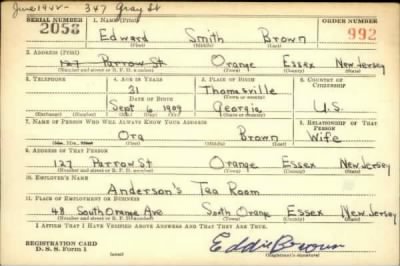 June 1942 - 347 Gray St
SERIAL NUMBER 1. NAME (Print) ORDER NUMBER
2058 Edward Smith Brown 992
(First) (Middle) (Last)
2. ADDRESS (Print)
127 Parrow St Orange Essex New Jersey
(Number and street or R. F. D. number) (Town) (County) (State)
3. TELEPHONE 4. AGE IN YEARS 5. PLACE OF BIRTH 6. COUNTRY OF CITIZENSHIP
31 Thomasville
DATE OF BIRTH (Town or county)
Sept 6 1909 Georgia U.S.
(Mo.) (Day) (Yr.) (State or country)
7. NAME OF PERSON WHO WILL ALWAYS KNOW YOUR ADDRESS 8. RELATIONSHIP OF THAT PERSON
Ora Brown Wife
(Mr., Mrs., Miss) (First) (Middle) (Last)
9. ADDRESS OF THAT PERSON
127 Parrow St Orange Essex New Jersey
(Number and street or R. F. D. number) (Town) (County) (State)
10. EMPLOYER'S NAME
Anderson's Tea Room
11. PLACE OF EMPLOYMENT OR BUSINESS
48 South Orange Ave South Orange Essex New Jersey
(Number and street or R. F. D. number) (Town) (County) (State)
I AFFIRM THAT I HAVE VERIFIED ABOVE ANSWERS AND THAT THEY ARE TRUE.
REGISTRATION CARD
D. S. S. Form 1 Eddie Brown